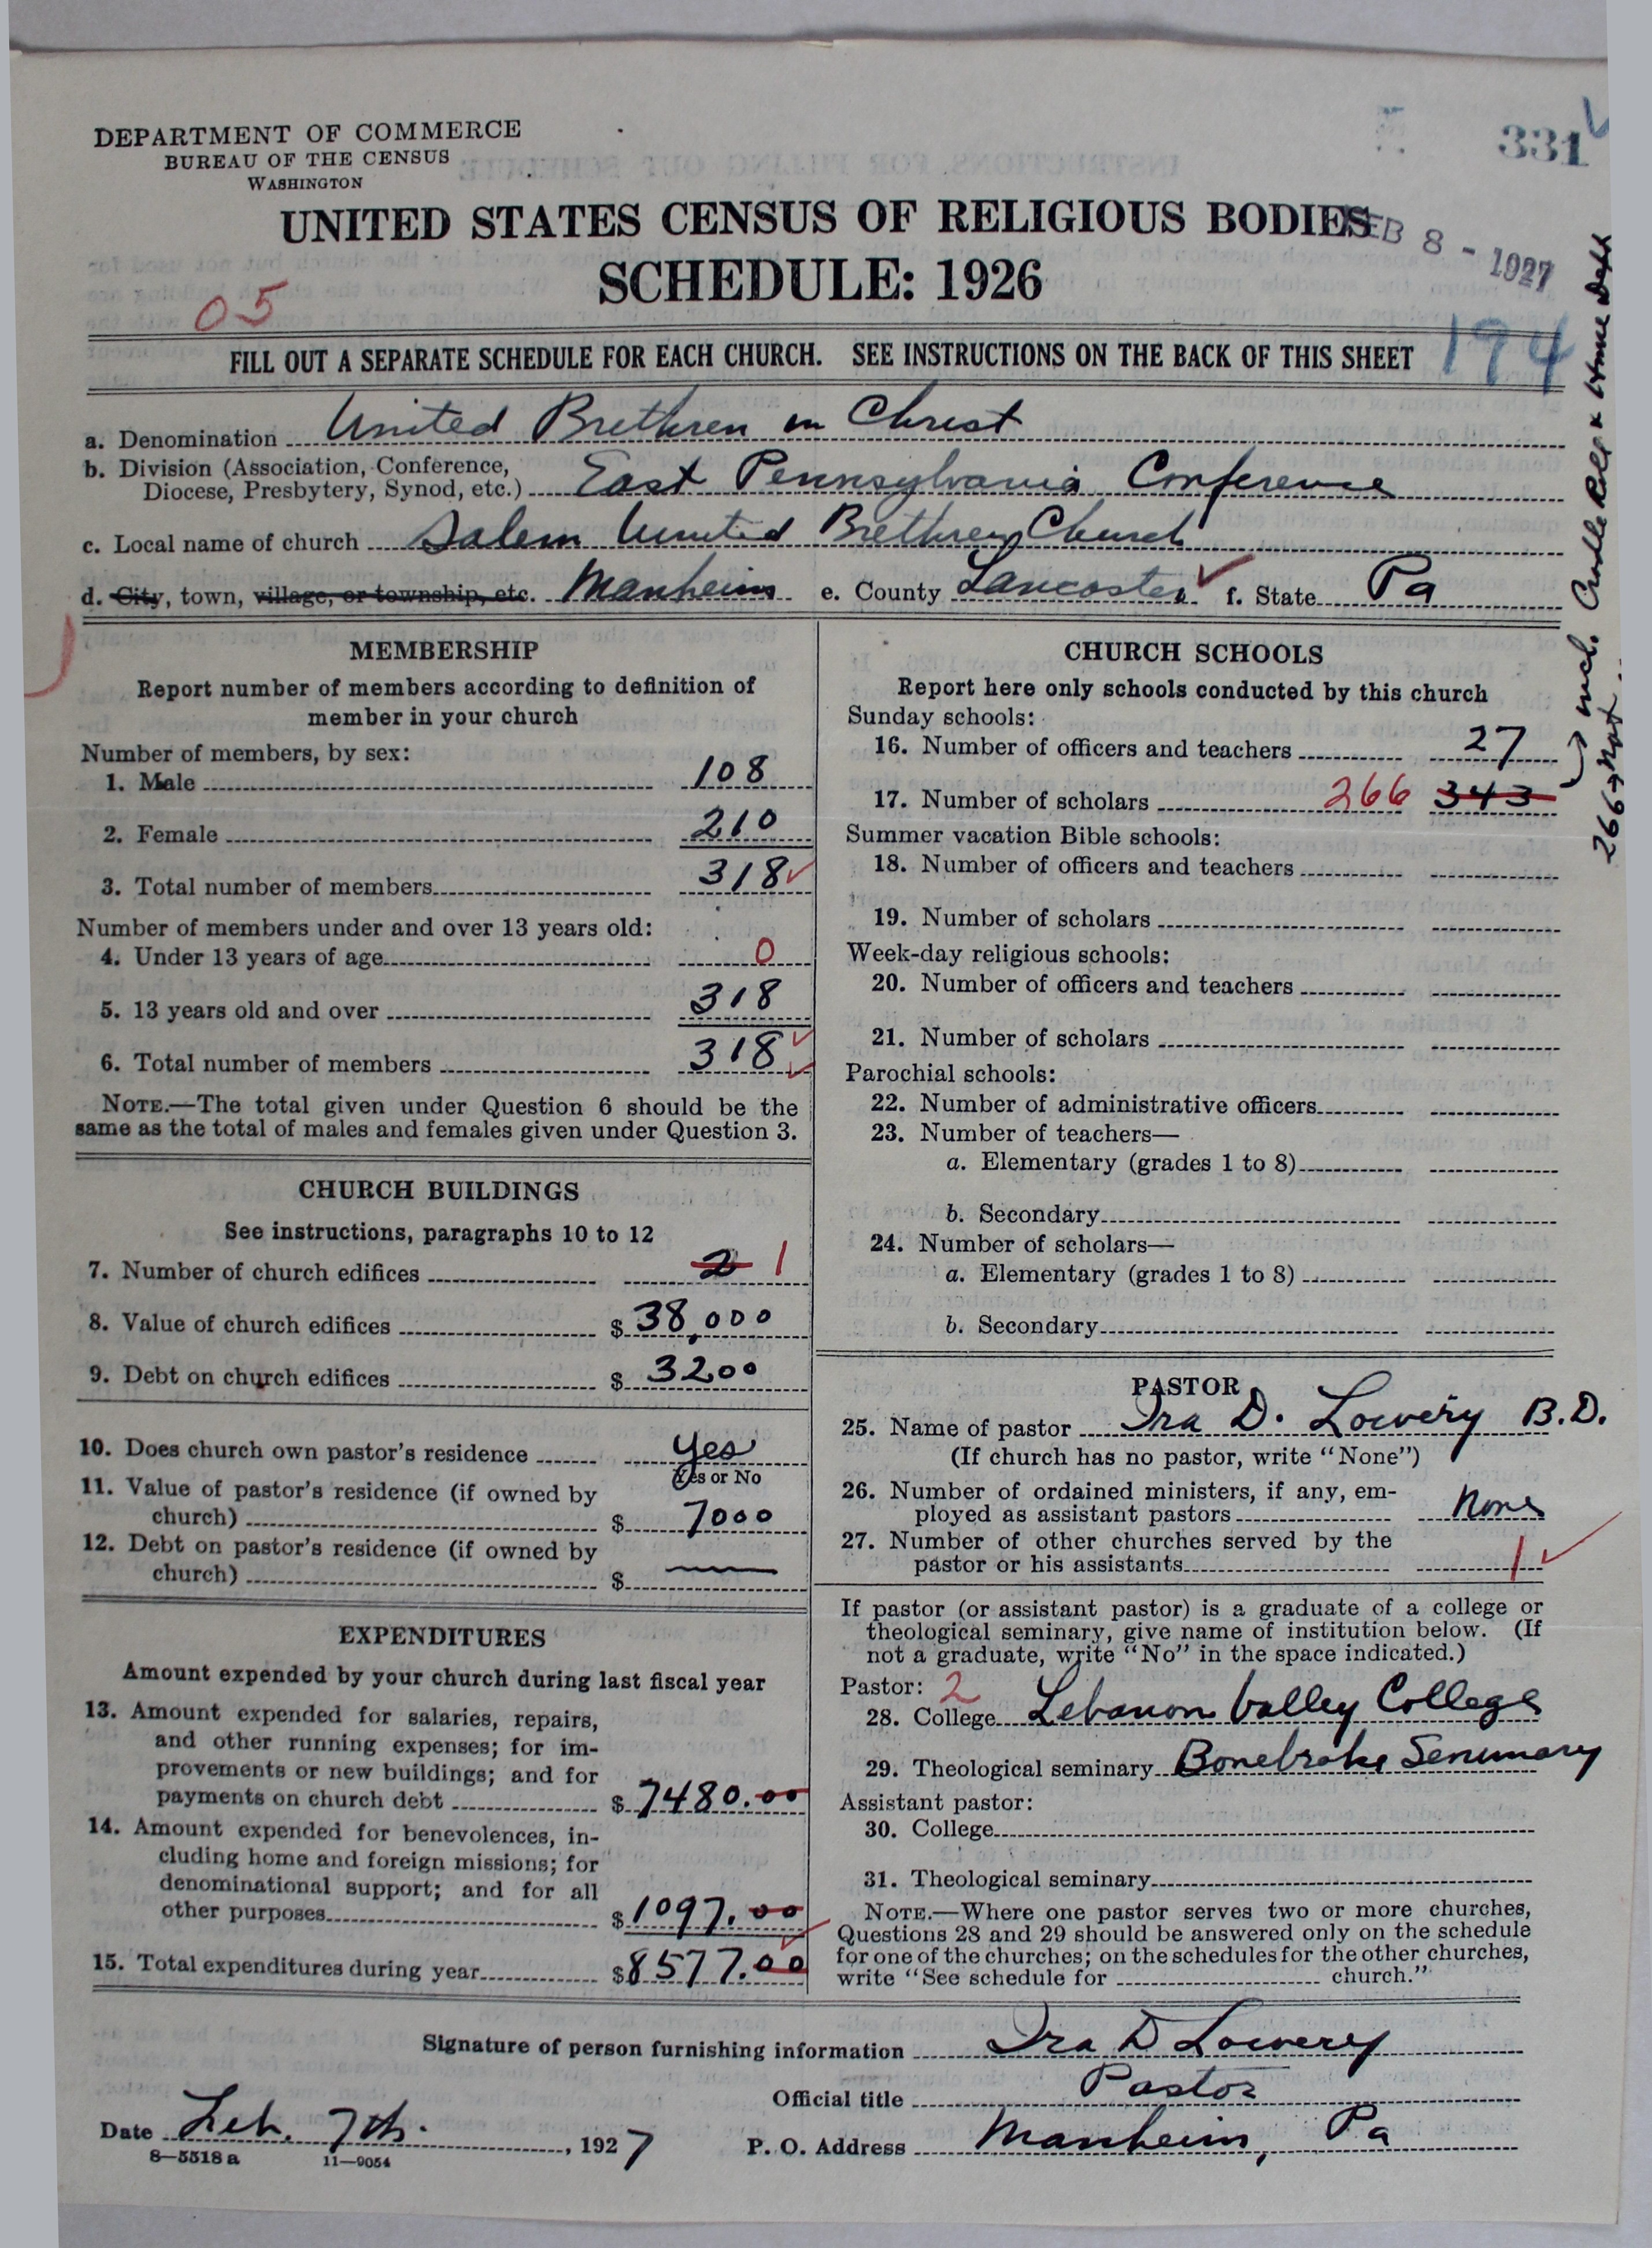 DEPARTMENT OF COMMERCE
BUREAU OF THE CENSUS
WASHINGTON
331
UNITED STATES CENSUS OF RELIGIOUS BODIES
FEB 8 - 1927
SCHEDULE: 1926
05
FILL OUT A SEPARATE SCHEDULE FOR EACH CHURCH. SEE INSTRUCTIONS ON THE BACK OF THIS SHEET
194
a. Denomination United Brethren in Christ
b. Division (Association, Conference,
Diocese, Presbytery, Synod, etc.) East Pennsylvania Conference
c. Local name of church Salem United Brethren Church
d. City, town, village, or township, etc. Manheim e. County Lancaster f. State Pa
MEMBERSHIP
Report number of members according to definition of
member in your church
Number of members, by sex:
1. Male 108
2. Female 210
3. Total number of members 318
Number of members under and over 13 years old:
4. Under 13 years of age 0
5. 13 years old and over 318
6. Total number of members 318
NOTE.—The total given under Question 6 should be the
same as the total of males and females given under Question 3.
CHURCH BUILDINGS
See instructions, paragraphs 10 to 12
7. Number of church edifices 2 1
8. Value of church edifices $ 38,000
9. Debt on church edifices $ 3200
10. Does church own pastor's residence yes
Yes or No
11. Value of pastor's residence (if owned by
church) $ 7000
12. Debt on pastor's residence (if owned by
church) $ —
EXPENDITURES
Amount expended by your church during last fiscal year
13. Amount expended for salaries, repairs,
and other running expenses; for im-
provements or new buildings; and for
payments on church debt $ 7480.00
14. Amount expended for benevolences, in-
cluding home and foreign missions; for
denominational support; and for all
other purposes $ 1097.00
15. Total expenditures during year $ 8577.00
CHURCH SCHOOLS
Report here only schools conducted by this church
Sunday schools:
16. Number of officers and teachers 27
17. Number of scholars 266 343
incl. Cradle Roll & Home Dept
266 → not
Summer vacation Bible schools:
18. Number of officers and teachers
19. Number of scholars
Week-day religious schools:
20. Number of officers and teachers
21. Number of scholars
Parochial schools:
22. Number of administrative officers
23. Number of teachers—
a. Elementary (grades 1 to 8)
b. Secondary
24. Number of scholars—
a. Elementary (grades 1 to 8)
b. Secondary
PASTOR
25. Name of pastor Ira D. Lowery B.D.
(If church has no pastor, write "None")
26. Number of ordained ministers, if any, em-
ployed as assistant pastors None
27. Number of other churches served by the
pastor or his assistants 1
If pastor (or assistant pastor) is a graduate of a college or
theological seminary, give name of institution below. (If
not a graduate, write "No" in the space indicated.)
Pastor: 2
28. College Lebanon Valley College
29. Theological seminary Bonebrake Seminary
Assistant pastor:
30. College
31. Theological seminary
NOTE.—Where one pastor serves two or more churches,
Questions 28 and 29 should be answered only on the schedule
for one of the churches; on the schedules for the other churches,
write "See schedule for church."
Signature of person furnishing information Ira D Lowery
Official title Pastor
Date Feb. 7th., 1927
P. O. Address Manheim, Pa
8—5518 a 11—9054